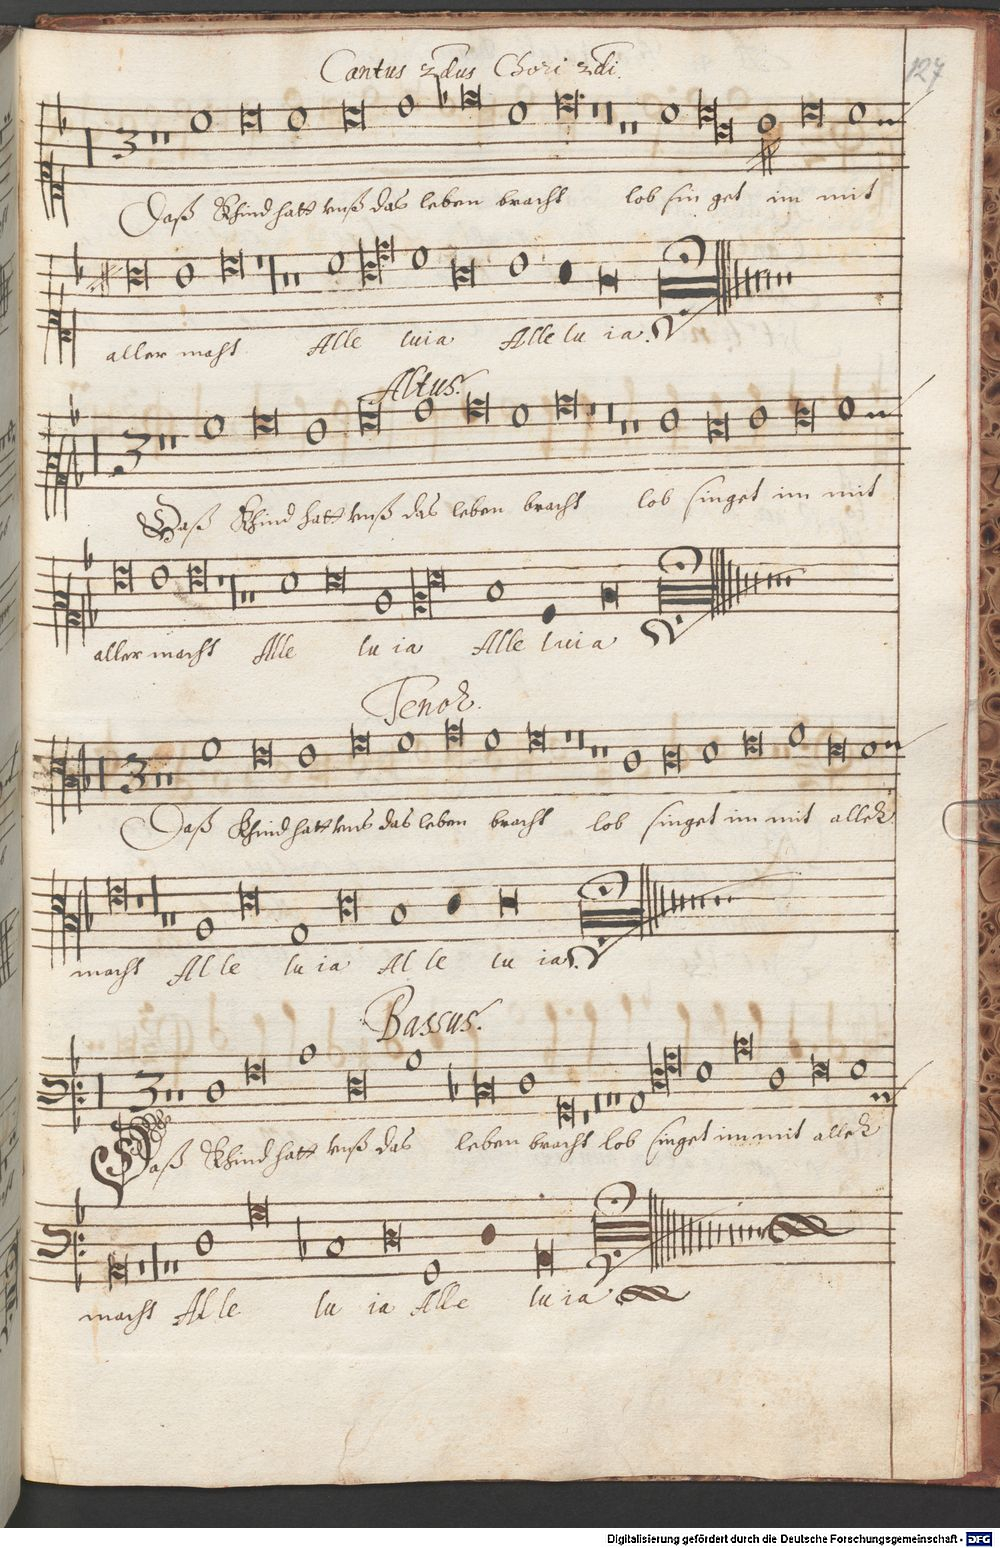 Cantus 2dus Chori 2di.
127
3
Daß Khind hatt unß das leben bracht lob sin get im mit
aller macht Alle luia Alle lu ia.
Altus.
3
Daß Khind hatt unß das leben bracht lob singet im mit
aller macht Alle lu ia Alle luia
Tenor.
3
Daß Khind hatt uns das leben bracht lob singet im mit aller
macht Al le lu ia Al le lu ia.
Bassus.
3
Daß Khind hatt unß das leben bracht lob singet im mit aller
macht Al le lu ia Alle lu ia
Digitalisierung gefördert durch die Deutsche Forschungsgemeinschaft - DFG